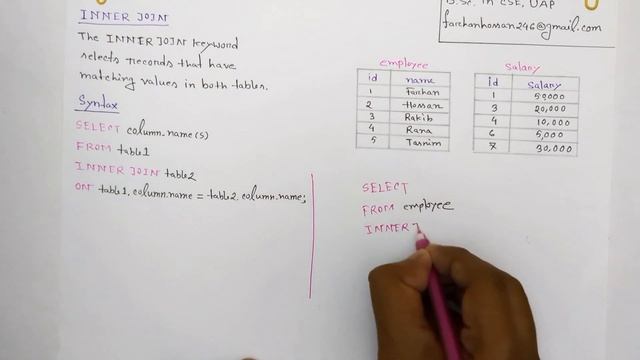 INNER JOIN
The INNER JOIN keyword
selects records that have
matching values in both tables.
Syntax
SELECT column.name(s)
FROM table1
INNER JOIN table2
ON table1.column.name = table2.column.name;
B.Sc. in CSE, UAP
farhanhossan246@gmail.com
employee
id name
1 Farhan
2 Hossan
3 Rakib
4 Rana
5 Tasnim
salary
id salary
1 50,000
3 20,000
4 10,000
6 5,000
7 30,000
SELECT
FROM employee
INNER